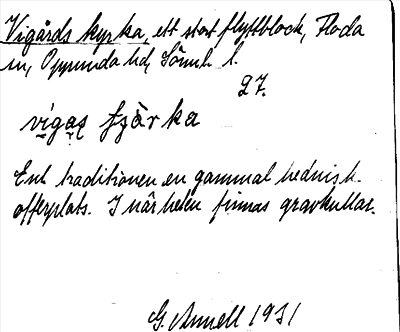 Vigårds kyrka, ett stort flyttblock, Floda
sn, Oppunda hd, Söml. l.
27.
vigaṣ
Enl. traditionen en gammal hednisk
offerplats. I närheten finnas gravkullar.
G. Annell 1931